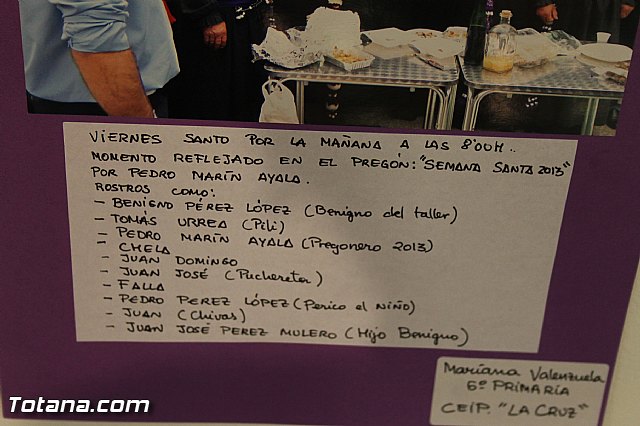 VIERNES SANTO POR LA MAÑANA A LAS 8'00H..
MOMENTO REFLEJADO EN EL PREGÓN: "SEMANA SANTA 2013"
POR PEDRO MARÍN AYALA.
ROSTROS COMO:
- BENIGNO PÉREZ LÓPEZ (Benigno del taller)
- TOMÁS URREA (Pili)
- PEDRO MARÍN AYALA (Pregonero 2013)
- CHELA
- JUAN DOMINGO
- JUAN JOSÉ (Pucheretes)
- FALLA
- PEDRO PEREZ LÓPEZ (Perico el NIÑO)
- JUAN (Chivas)
- JUAN JOSÉ PEREZ MULERO (Hijo Benigno)
Mariana Valenzuela
6º PRIMARIA
CEIP. "LA CRUZ"
Totana.com